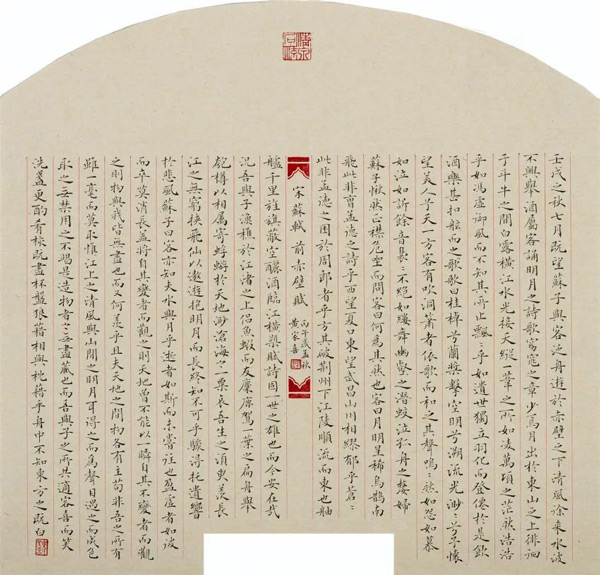 壬戌之秋七月既望蘇子與客泛舟遊於赤壁之下清風徐來水波
不興舉酒屬客誦明月之詩歌窈窕之章少焉月出於東山之上徘徊
于斗牛之間白露橫江水光接天縱一葦之所如凌萬頃之茫然浩浩
乎如馮虛御風而不知其所止飄〻乎如遺世獨立羽化而登僊於是飲
酒樂甚扣舷而歌之歌曰桂棹兮蘭槳擊空明兮溯流光渺〻兮予懷
望美人兮天一方客有吹洞簫者依歌而和之其聲嗚〻然如怨如慕
如泣如訴餘音裊〻不絕如縷舞幽壑之潛蛟泣孤舟之嫠婦
蘇子愀然正襟危坐而問客曰何為其然也客曰月明星稀烏鵲南
飛此非曹孟德之詩乎西望夏口東望武昌山川相繆郁乎蒼〻
此非孟德之困於周郎者乎方其破荊州下江陵順流而東也舳
宋蘇軾前赤壁賦
黃家喜
艫千里旌旗蔽空釃酒臨江橫槊賦詩固一世之雄也而今安在哉
況吾與子漁樵於江渚之上侶魚蝦而友麋鹿駕一葉之扁舟舉
匏樽以相屬寄蜉蝣於天地渺滄海之一粟哀吾生之須臾羨長
江之無窮挾飛仙以遨遊抱明月而長終知不可乎驟得托遺響
於悲風蘇子曰客亦知夫水與月乎逝者如斯而未嘗往也盈虛者如彼
而卒莫消長蓋將自其變者而觀之則天地曾不能以一瞬自其不變者而觀
之則物與我皆無盡也而又何羨乎且夫天地之間物各有主苟非吾之所有
雖一毫而莫取惟江上之清風與山間之明月耳得之而為聲目遇之而成色
取之無禁用之不竭是造物者之無盡藏也而吾與子之所共適客喜而笑
洗盞更酌肴核既盡杯盤狼籍相與枕藉乎舟中不知東方之既白